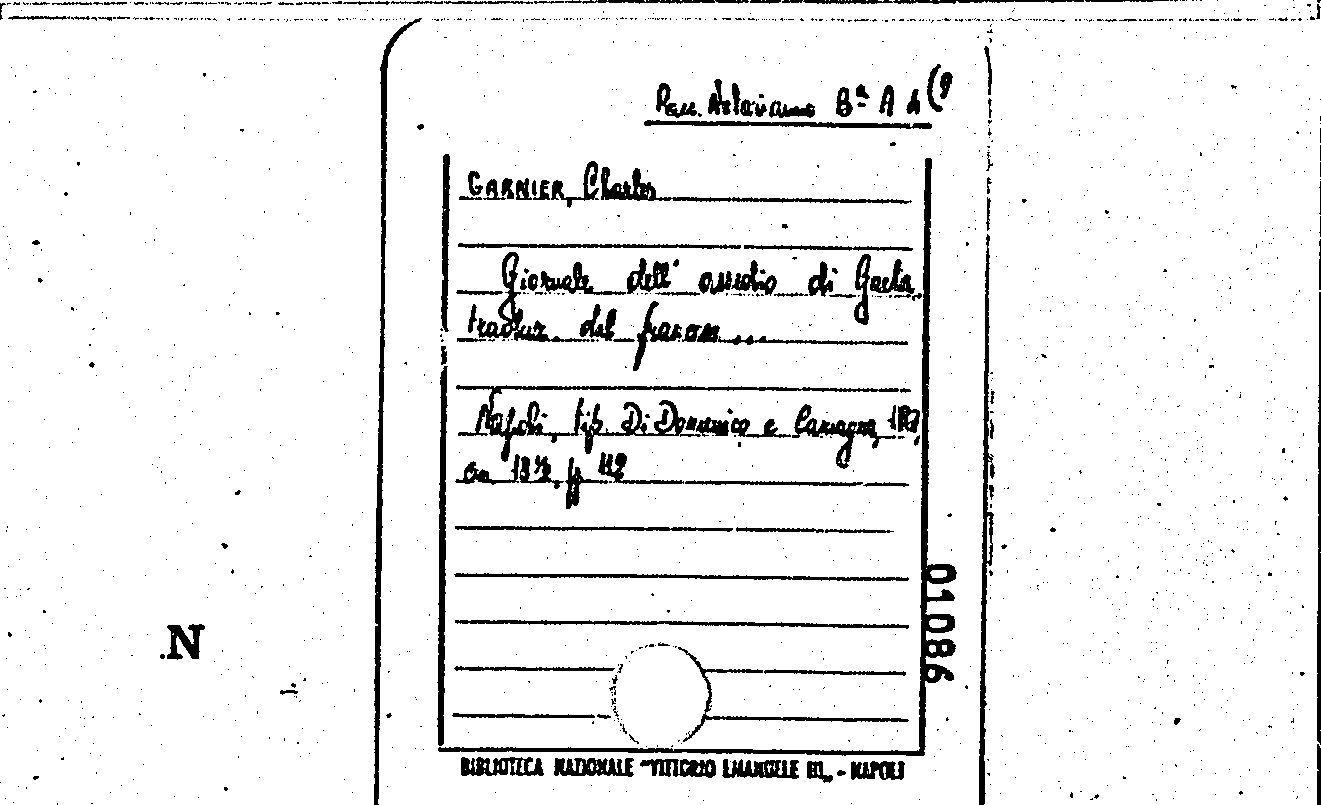 Racc. Astarianno Bª A 4 (9
GARNIER, Charles
Giornale dell'assedio di Gaeta,
traduz. dal frances...
Napoli, tip. Di Domenico e
cm. 18½. pp 112
01086
N
BIBLIOTECA NAZIONALE "VITTORIO EMANUELE III" - NAPOLI